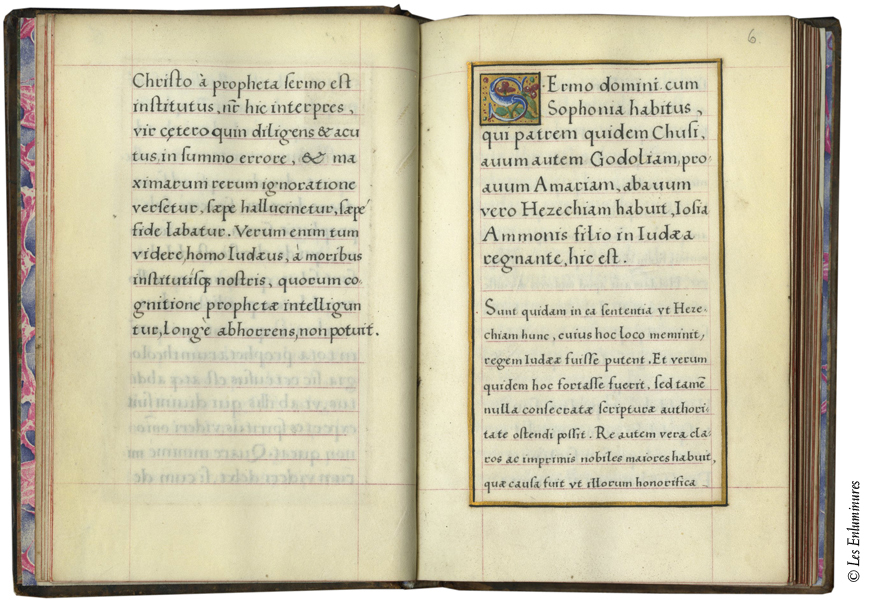 Christo à propheta sermo est
institutus, nr̄ hic interpres,
vir cętero quin diligens & acu
tus, in summo errore, & ma
ximarum rerum ignoratione
versetur, sæpe hallucinetur, sæpe
fide labatur. Verum enim tum
videre, homo Iudæus, à moribus
institutisq; nostris, quorum co-
gnitione prophetæ intelligun
tur, longè abhorrens, non potuit.
6.
SErmo domini cum
Sophonia habitus,
qui patrem quidem Chusi,
auum autem Godoliam, pro-
auum Amariam, abauum
vero Hezechiam habuit, Iosia
Ammonis filio in Iudæa
regnante, hic est.
Sunt quidam in ea sententia vt Heze-
chiam hunc, cuius hoc loco meminit,
regem Iudææ fuisse putent. Et verum
quidem hoc fortasse fuerit, sed tamē
nulla consecratæ scripturæ authori-
tate ostendi possit. Re autem vera cla-
ros ac imprimis nobiles maiores habuit,
quæ causa fuit vt illorum honorifica
© Les Enluminures